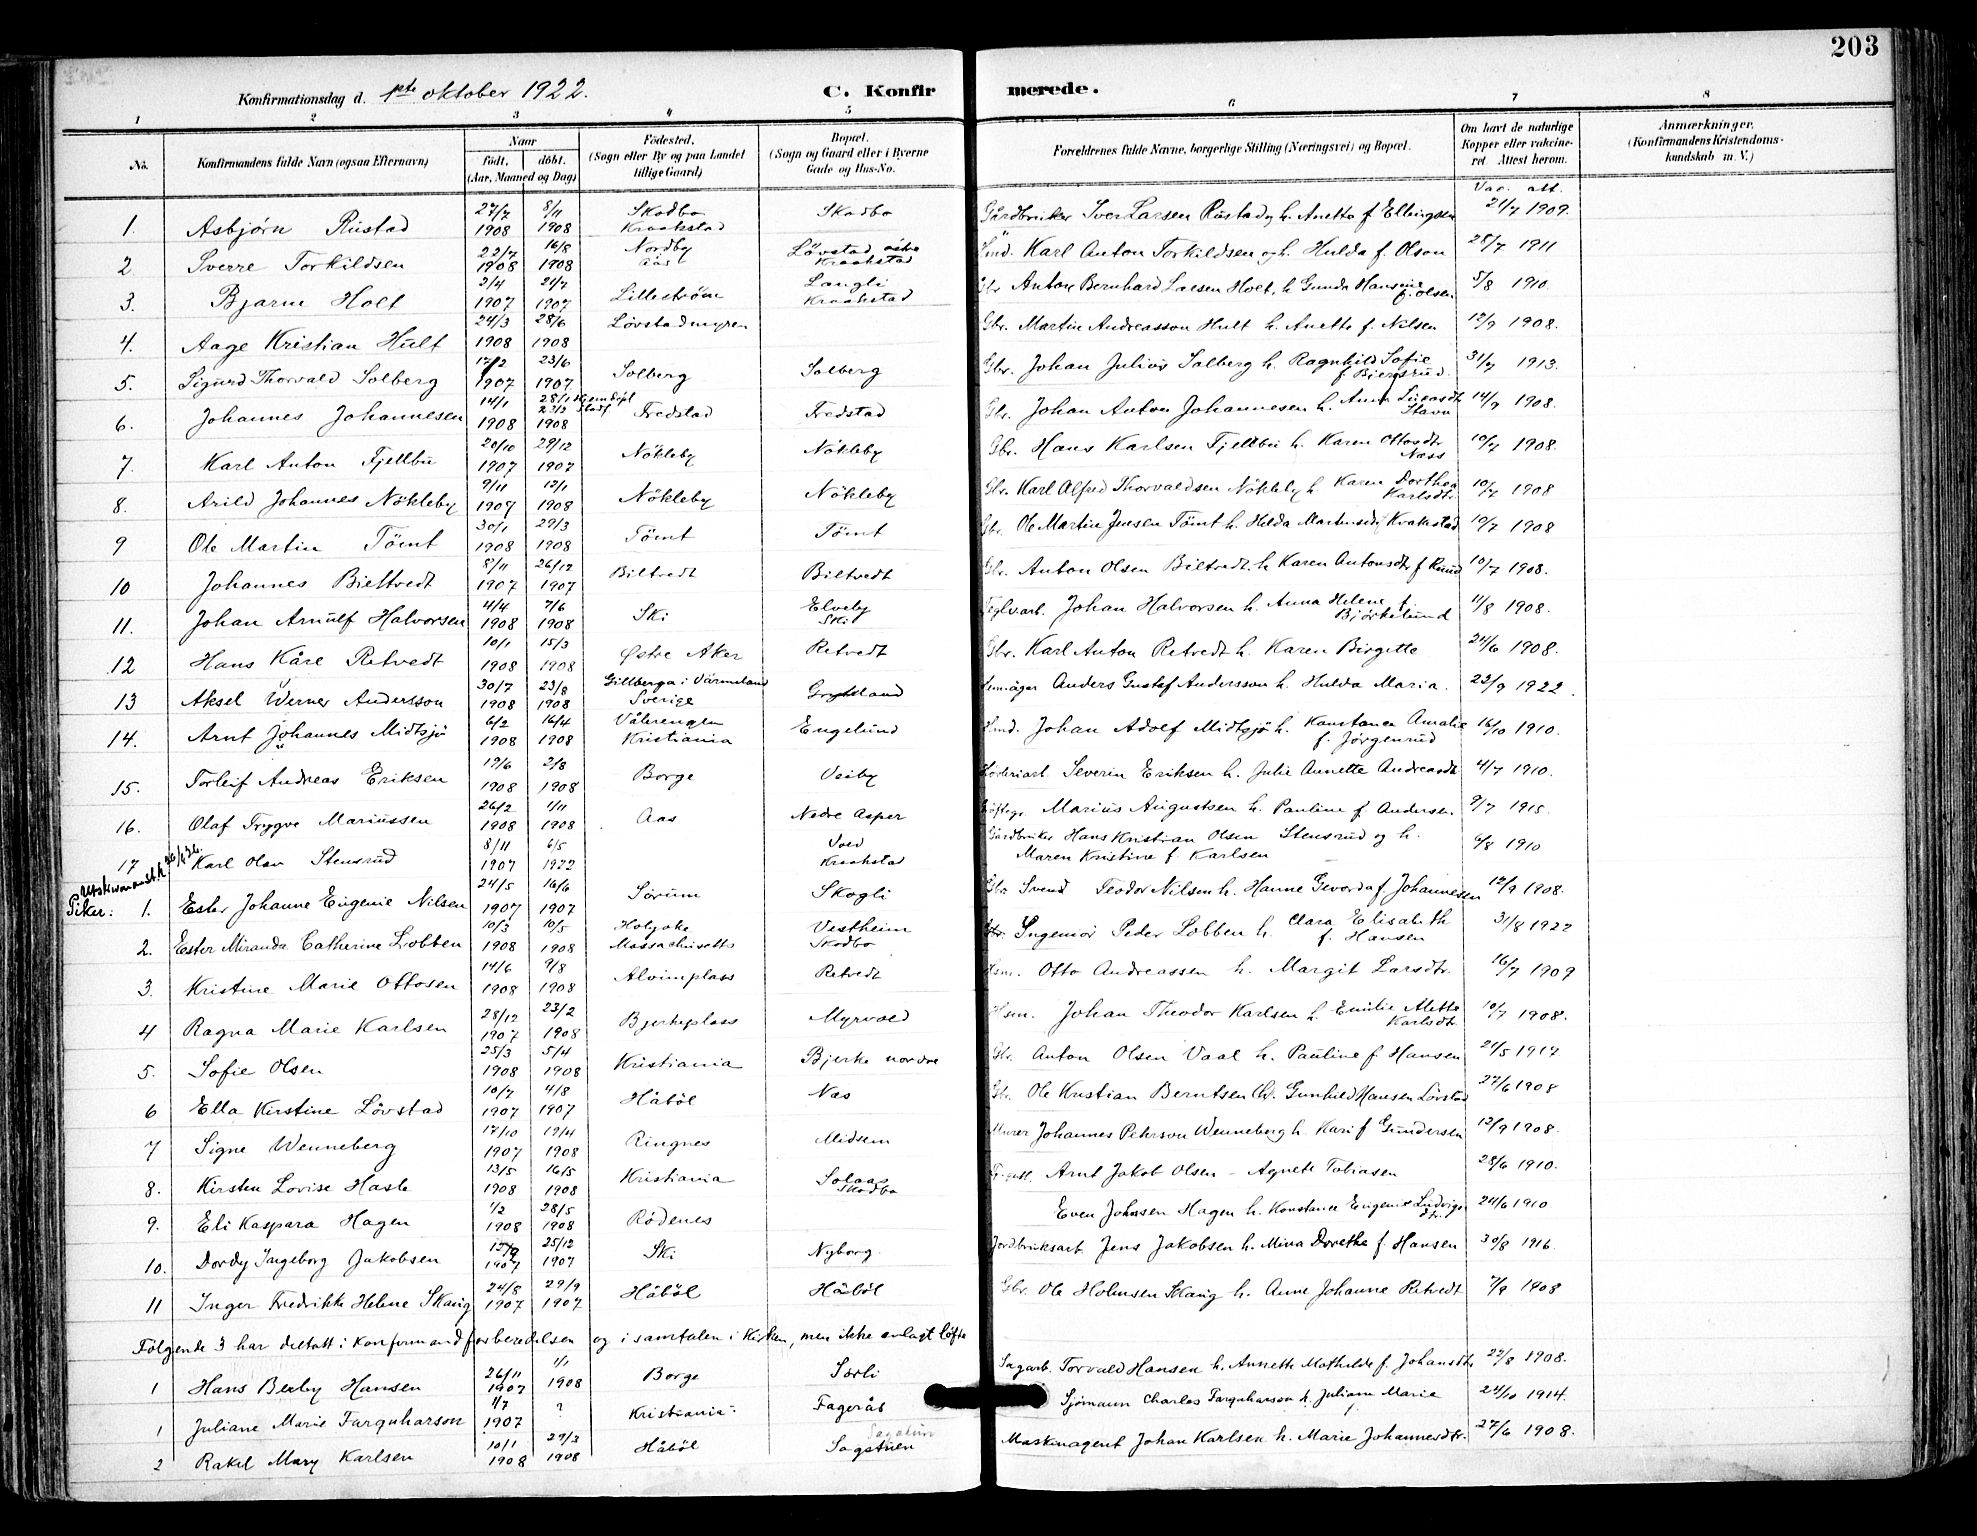 203
Konfirmationsdag d. 1ste oktober 1922. C. Konfirmerede.
1 2 3 4 5 6 7 8
No. Konfirmandens fulde Navn (ogsaa Efternavn) Naar født, døbt. (Aar, Maaned og Dag) Fødested. (Sogn eller By og paa Landet tillige Gaard) Bopæl. (Sogn og Gaard eller i Byerne Gade og Hus-No. Forældrenes fulde Navne, borgerlige Stilling (Næringsvei) og Bopæl. Om havt de naturlige Kopper eller vakcineret Attest herom. Anmærkninger. (Konfirmandens Kristendomskundskab m. V.)
Vac. att.
1. Asbjørn Rustad 27/7 1908 8/11 1908 Skodbo Kraakstad Skodbo Gårdbruker Iver Larsen Rustad og h. Anette f Ellingsen 21/7 1909.
2 Sverre Torkildsen 22/7 1908 16/8 1908 Nordby Aas Løvstad Kraakstad Smd. Karl Anton Torkildsen og h. Hulda f. Olson 28/7 1911
3. Bjarne Holt 2/4 1907 21/7 1907 Lillestrøm Langli Kraakstad Gbr Anton Bernhard Larsen Holt, h Gunda Hansine f. Olsen 5/8 1910.
4. Aage Kristian Hult 24/3 1908 28/6 1908 Løvstadmyren Gbr. Martin Andreasson Hult h. Anette f. Nilsen 12/9 1908.
5. Sigurd Thorvald Solberg 17/2 1907 23/6 1907. Solberg Solberg Gbr. Johan Julius Solberg h. Ragnhild Sofie f. Bjersrud. 31/7 1913.
6. Johannes Johannesen 14/1 1908 28/1 Hjemdøpt 23/2 Stadf 1908 Fredstad Fredstad Gbr. Johan Anton Johannesen h. Anna 14/9 1908.
7. Karl Anton Fjellbu 20/10 1907 29/12 1907 Nökleby Nökleby Gbr. Hans Karlsen Fjellbu h. Karen Ottosdtr Næss 10/7 1908.
8. Arild Johannes Nökleby 9/11 1907 12/1 1908 Nökleby Nökleby Gbr. Karl Alfred Thorvaldsen Nökleby h. Karen Dorthea Karlsdt. 10/7 1908
9 Ole Martin Tömt 30/1 1908 29/3 1908 Tömt Tömt Gbr. Ole Martin Jensen Tömt h. Helda Martinsdtr Kraakstad 10/7 1908
10 Johannes Bieltvedt 8/11 1907 26/12 1907 Biltvedt Biltvedt Gbr. Anton Olsen Biltvedt h. Karen Antonsdtr f Ruud 10/7 1908.
11. Johan Arnulf Halvorsen 4/4 1908 7/6 1908 Ski Elveby Ski Teglvarb. Johan Halvorsen h. Anna Helene f. Bjørkelund 11/8 1908.
12 Hans Kåre Retvedt 10/1 1908 15/3 1908 Østre Aker Retvedt Gbr. Karl Anton Retvedt h. Karen Birgitte 24/6 1908.
13 Aksel Werner Andersson 30/7 1908 23/8 1908 Gillberga i Värmeland Sverige Anders Gustaf Andersson h. Hulda Maria. 23/9 1922.
14. Arnt Jöhannes Midtsjö 6/2 1908 16/4 1908 Vålerengen Kristiania Engelund Smd. Johan Adolf Midtsjö h. Konstance Amalie f. Jörgenrud 16/10 1910.
15. Torleif Andreas Eriksen 19/6 1908 2/8 1908 Borge Veiby Severin Eriksen h. Julie Annette Andreasdt 4/7 1910.
16. Olaf Trygve Mariussen 26/2 1908 1/11 1908 Aas Nedre Asper Marius Augustsen h. Pauline f. Andersen. 9/7 1915.
17 Karl Olav Stensrud 8/11 1907 6/5 1922 Kraakstad Gårdbruker Hans Kristian Olsen Stensrud og h. Maren Kristine f. Karlsen 6/8 1910
Piker: 1. Ester Johanne Eugenie Nilsen 24/5 1907 16/6 1907 Sørum Skogli Gbr Svend Teodor Nilsen h. Hanne Gevorda f. Johannesen 12/9 1908.
2. Ester Miranda Catherine Lobben 10/3 1908 10/5 1908 Holyoke Massachusetts Vestheim Skodbo Ingeniør Peder Lobben h Clara Elisabeth f. Hansen 31/8 1922
3. Kristine Marie Ottosen 14/6 1908 9/8 1908 Alvimplass Retvedt Hsm. Otto Andreassen h. Margit Larsdtr. 16/7 1909
4 Ragna Marie Karlsen 28/12 1907 23/2 1908 Bjerkeplass Myrvold Hsm. Johan Theodor Karlsen h. Emilie Mette Karlsdtr. 10/7 1908.
5. Sofie Olsen 25/3 1908 5/4 1908 Kristiania Bjerke nordre Gbr. Anton Olsen Vaal h. Pauline f Hansen 21/5 1917
6 Ella Kirstine Lövstad 10/7 1907 4/8 1907 Håböl Nas Gbr. Ole Kristian Berntsen Gunhild Hansen Lövstad 27/6 1908
7 Signe Wenneberg 17/10 1907 19/4 1908 Ringnes Midsem Murer Johannes Pehrson Wenneberg h. Kari f Gundersen 12/9 1908.
8. Kirsten Lovise Hasle 13/5 1908 16/5 1908 Kristiania Solaas Skodbo Arnt Jakob Olsen - Agnete Tobiasen 28/6 1910.
9. Eli Kaspara Hagen 1/2 1908 28/5 1908 Rödenes Even Johnsen Hagen h. Konstance Eugenie Ludvigsdtr. 24/6 1910
10. Dordy Ingeborg Jakobsen 15/9 1907 25/12 1907 Ski Nyborg. Jordbruksarb Jens Jakobsen h. Mina Dorethe f Hansen 30/8 1916.
11 Inger Fredrikke Helene Skaug 24/8 1907 29/9 1907 Håböl Håböl Gbr. Ole Holmsen Skaug h. Anne Johanne Retvedt 7/9 1908
Følgende 3 har deltatt i konfirmandforberedelsen og i samtalen i kirken, men ikke avlagt løfte
1 Hans Berby Hansen 26/11 1907 1/1 1908 Borge Sørli Sagarb. Torvald Hansen h. Annette Mathilde f. Johansdtr 22/8 1908.
1 Juliane Marie Farquharson 1/7 1907 ? Kristiania. Fageråt Sjømann Charles Farquharson h. Juliane Marie 24/10 1914.
2 Rakel Mary Karlsen 10/1 1908 29/3 1908 Håböl Sagstuen Maskinagent Johan Karlsen h. Marie Johannesdtr. 27/6 1908.